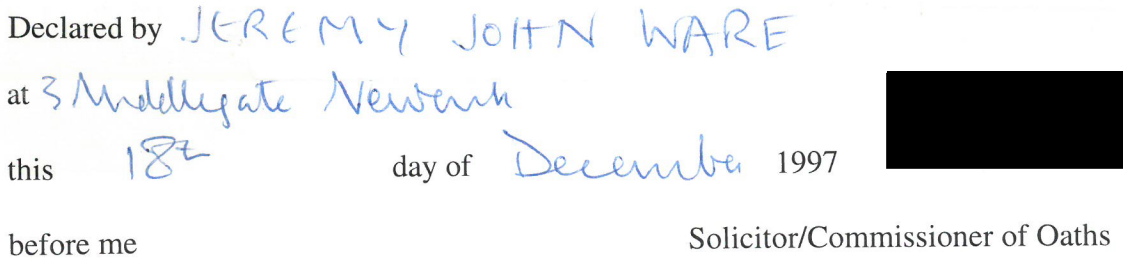 Declared by JEREMY JOHN WARE
at 3 Middlegate Newark
this 18th day of December 1997
before me Solicitor/Commissioner of Oaths